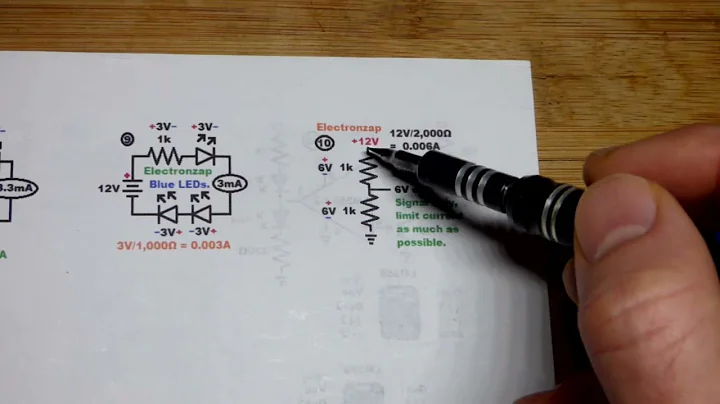 3.3mA
A
9
+3V-
+3V-
1k
+
12V
Electronzap
Blue LEDs.
3mA
-3V+
-3V+
3V/1,000Ω = 0.003A
Electronzap
10
+12V
12V/2,000Ω
= 0.006A
+
6V
-
1k
6V
+
6V
-
1k
Signal
limit
as much as
possible.